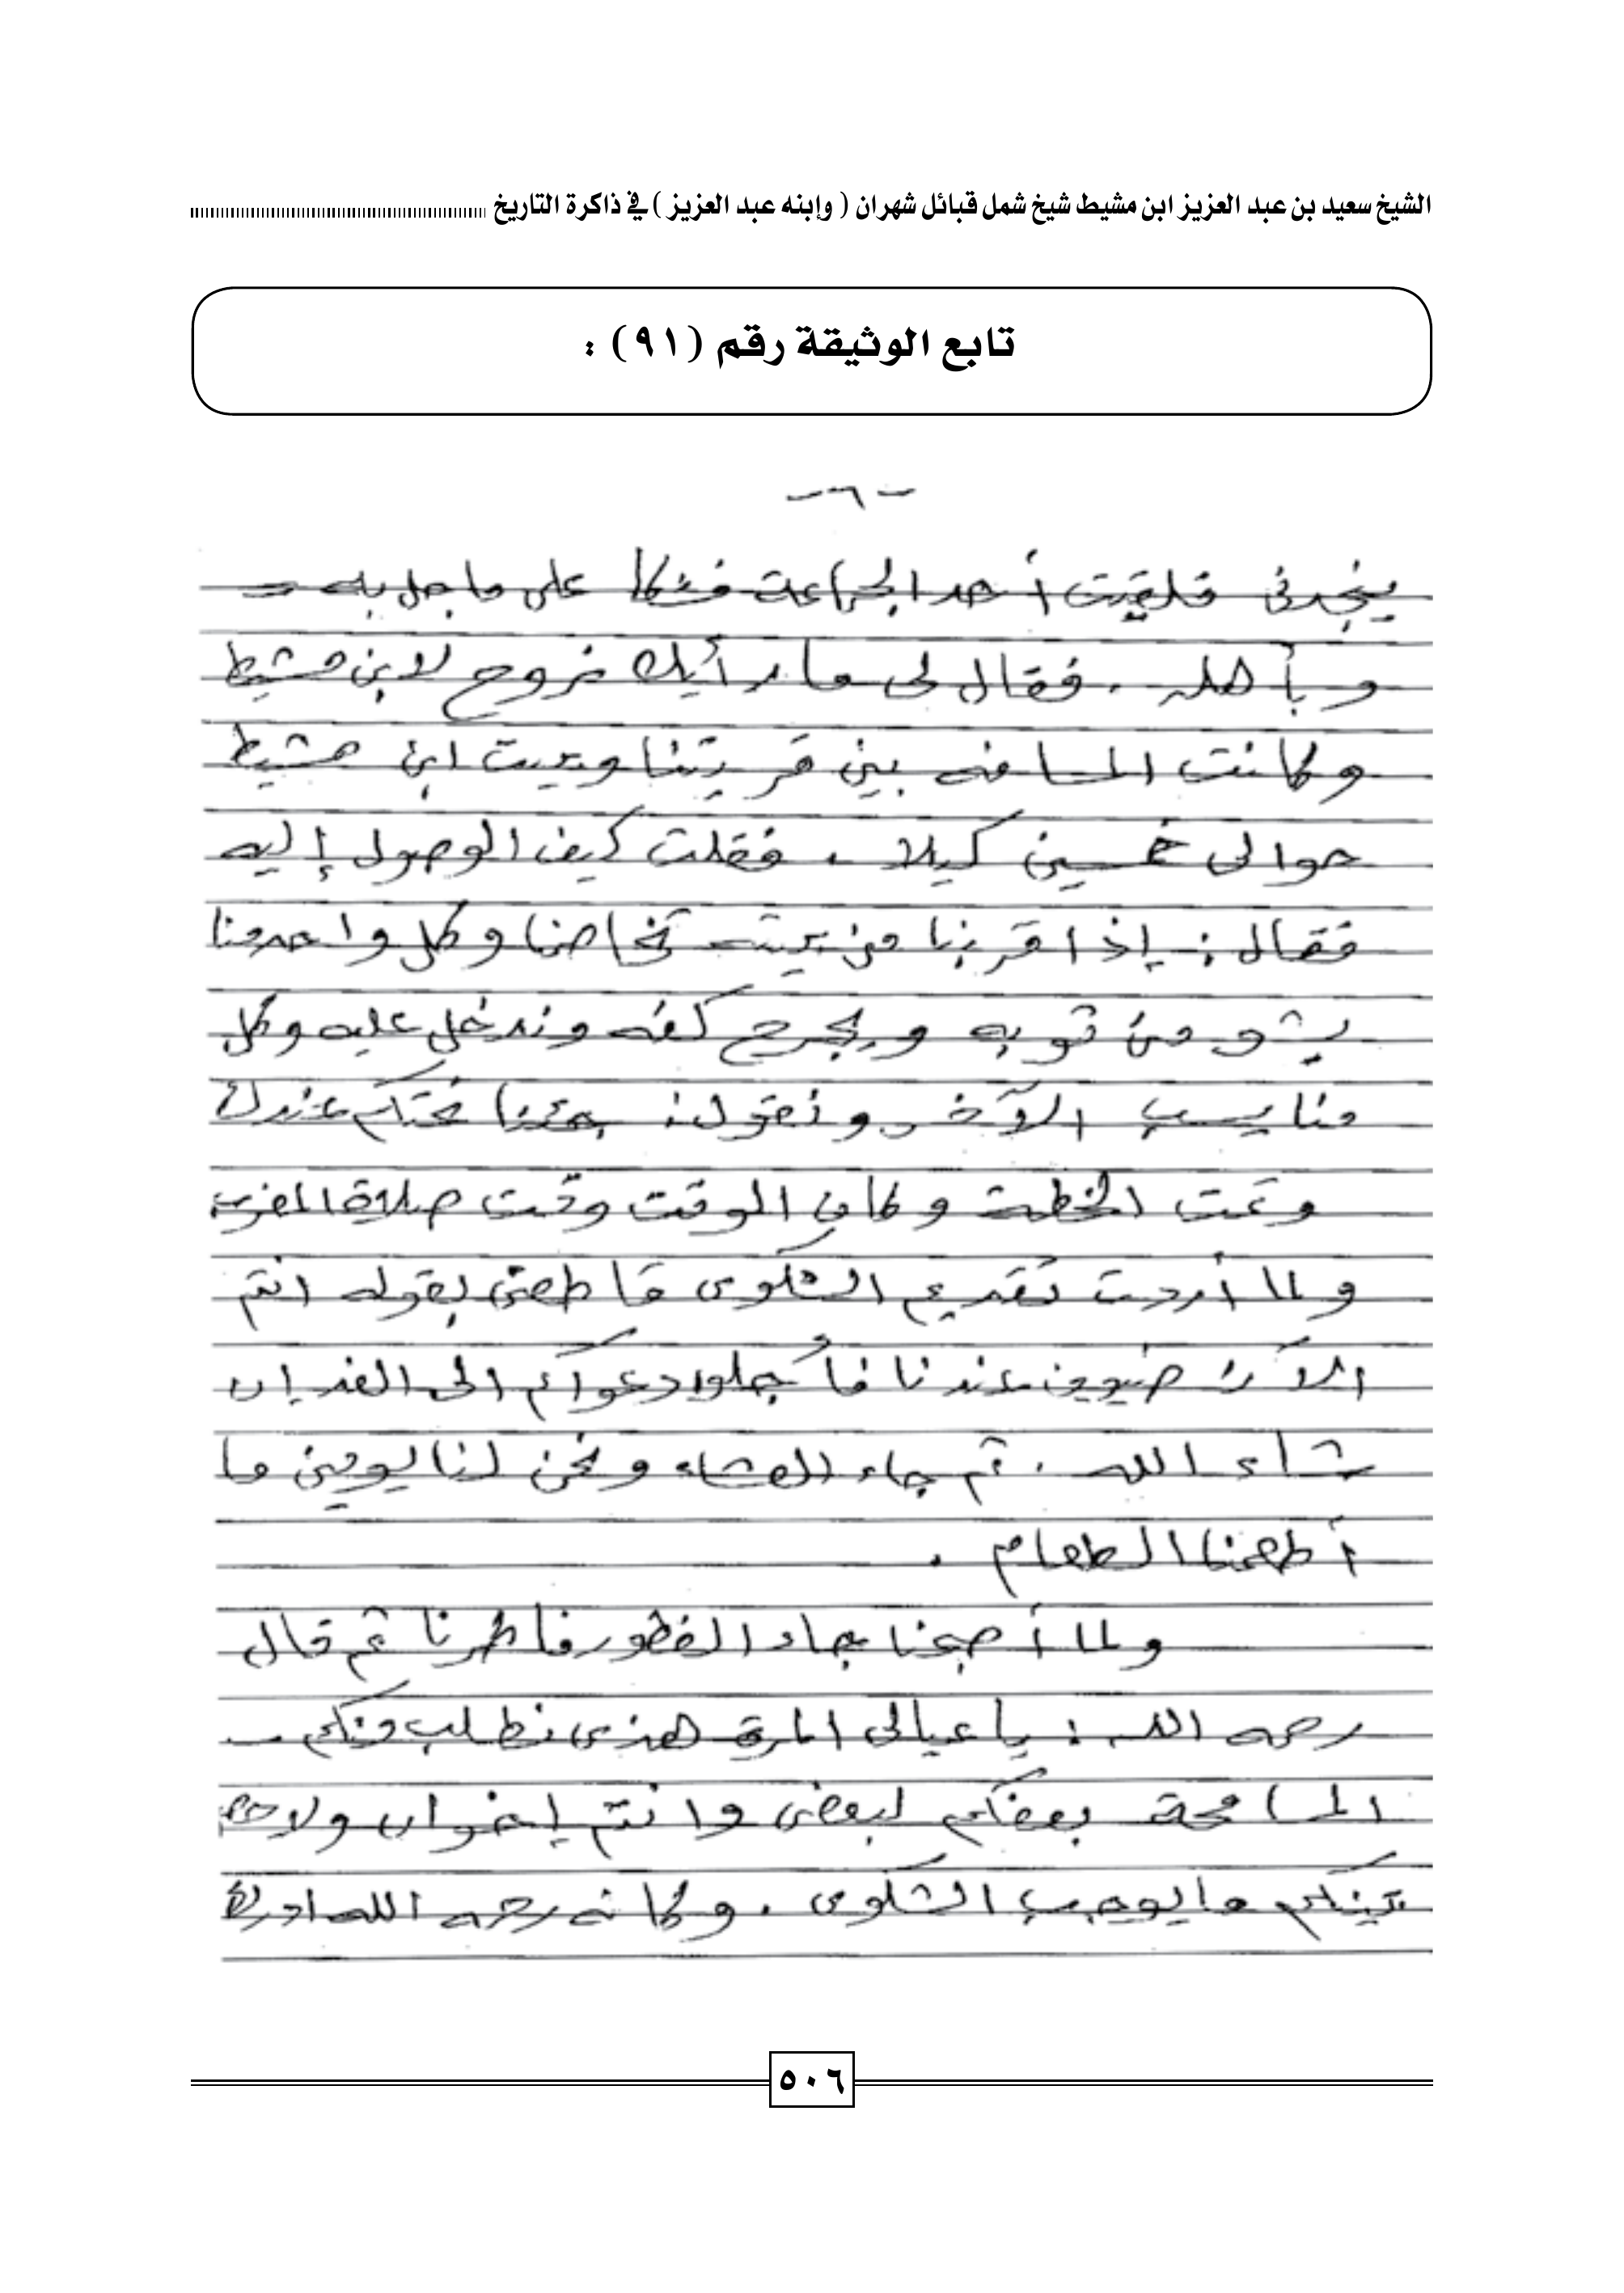 الشيخ سعيد بن عبد العزيز ابن مشيط شيخ شمل قبائل شهران ( وإبنه عبد العزيز ) في ذاكرة التاريخ
تابع الوثيقة رقم (٩١) :
-٦-
ينجدني فلقيت أحد الجماعة فشكا على ما حل به
وبأهله . فقال لى ما رأيك نروح لابن مشيط
وكانت المسافه بين قريتنا وبيت ابن مشيط
حوالى خمسين كيلا . فقلت كيف الوصول إليه
فقال : إذا قربنا من بيته تخاصنا وكل واحد منا
يشد من ثوبه ويجرح كفه وندخل عليه وكل
منا يسب الآخر ونقول : جئنا نحتكم عندك
وتمت الخطة وكان الوقت وقت صلاة المغرب
ولما أردت تقديم الشكوى قاطعنى بقوله انتم
الآن ضيوف عندنا فأجلوا دعواكم الى الغد إن
شاء الله . ثم جاء العشاء ونحن لنا يومين ما
أطعمنا الطعام .
ولما أصبحنا جاء الفطور فافطرنا ثم قال
رحمه الله : يا عيالى المرة هذى نطلب منكم
المسامحة بعضكم لبعض وانتم إخوان ولا
بينكم ما يوجب الشكوى . وكأنه رحمه الله ادرك
٥٠٦